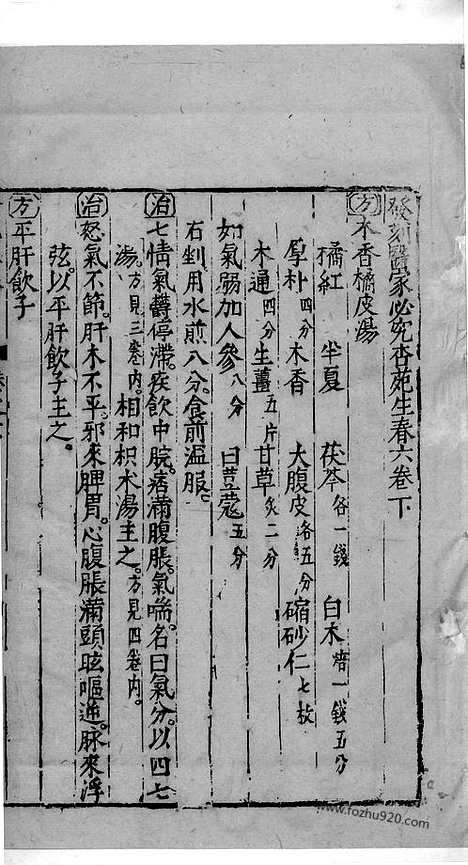 發刻醫家必究杏苑生春六卷下
方木香橘皮湯
橘紅 半夏 茯苓各一錢 白术焙一錢五分
厚朴四分 木香 大腹皮各五分 縮砂仁七枚
木通四分 生薑五片 甘草炙二分
如氣弱加人參八分 白荳蔲五分
右剉用水煎八分。食前溫服。
治七情氣欝停滯。痰飲中脘。痞滿腹脹。氣喘。名曰氣分。以四七
湯。方見三卷內 相和枳术湯主之。方見四卷內。
治怒氣不節。肝木不平。邪來脾胃。心腹脹滿頭眩嘔逆。脉來浮
弦。以平肝飲子主之。
方平肝飲子
www.fozhu920.com